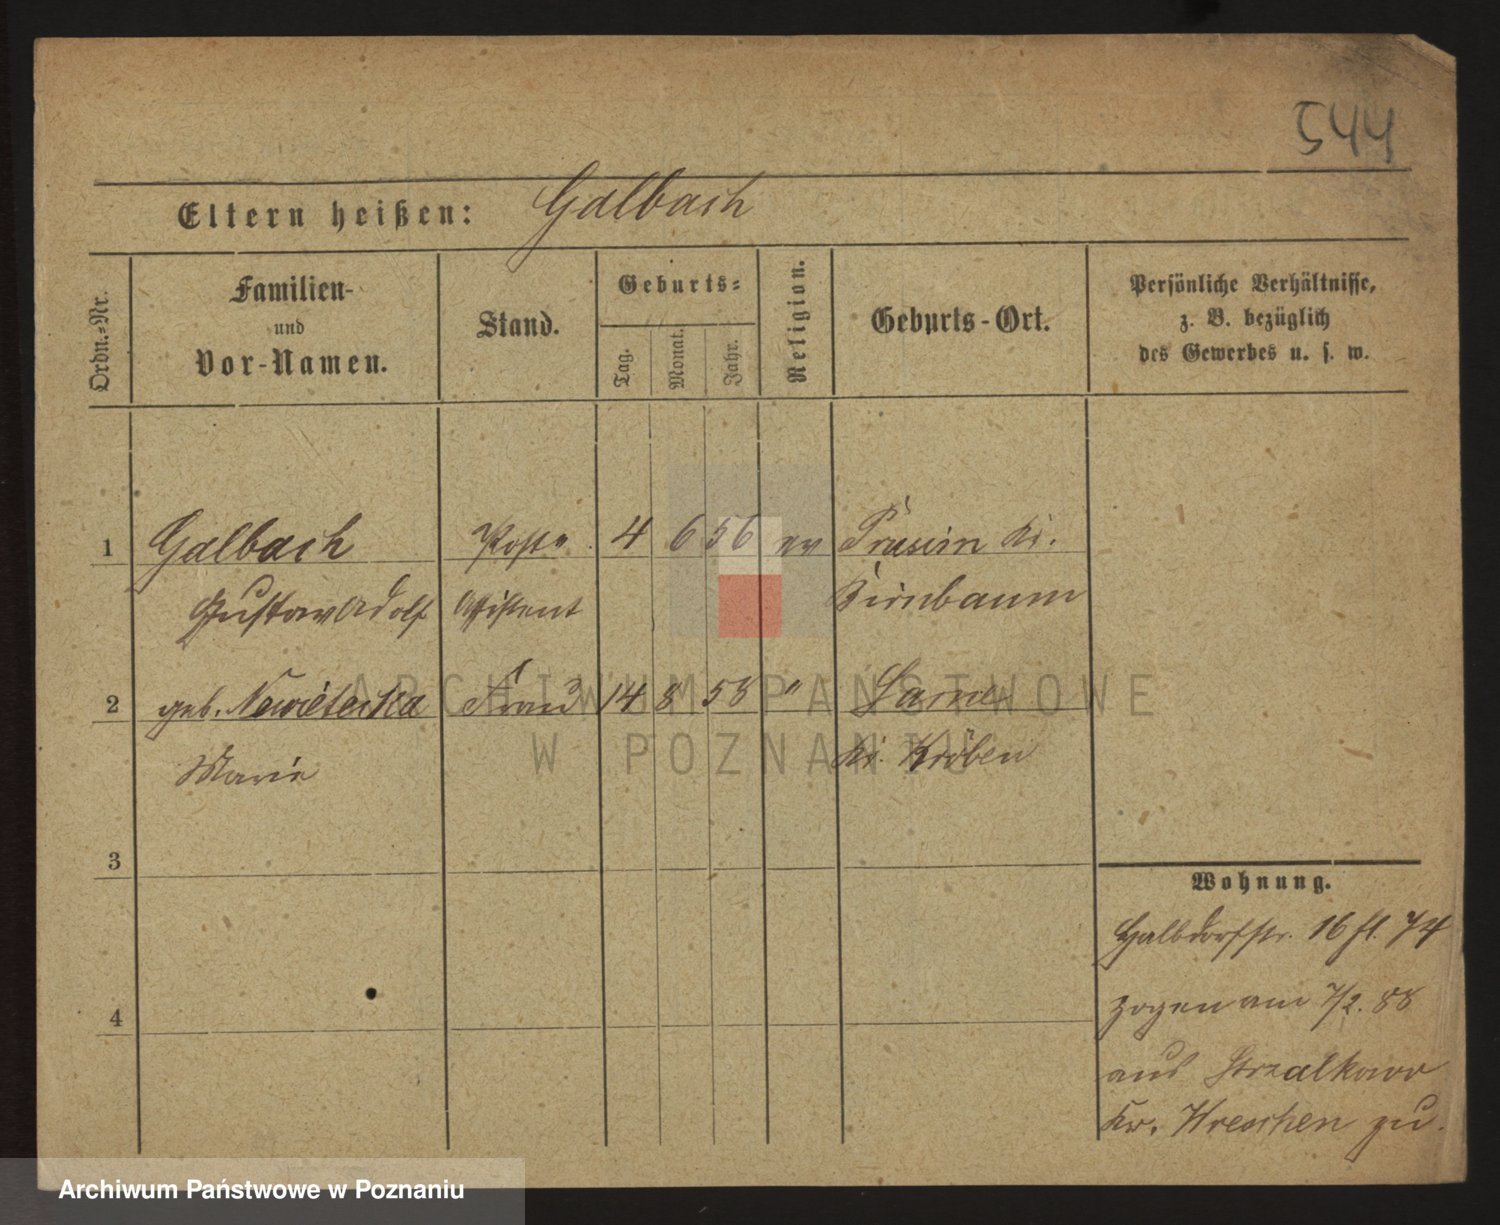 544
Eltern heißen: Galbach
Ordn.-Nr.
Familien-
und
Vor-Namen.
Stand.
Geburts-
Tag.
Monat.
Jahr.
Religion.
Geburts-Ort.
Persönliche Verhältnisse,
z. B. bezüglich
des Gewerbes u. s. w.
1 Galbach Post= 4 6 56 ev Prusim Kr.
Gustav Adolf Assistent Birnbaum
2 geb. Frau 14 8 53 " Sarne
Marie Kr. Kröben
3
4
Wohnung.
Halbdorfstr. 16 fl. 74
zogen am 7/2. 88
aus Strzalkowo
Kr. Wreschen zu.
ARCHIWUM PAŃSTWOWE
W POZNANIU
Archiwum Państwowe w Poznaniu